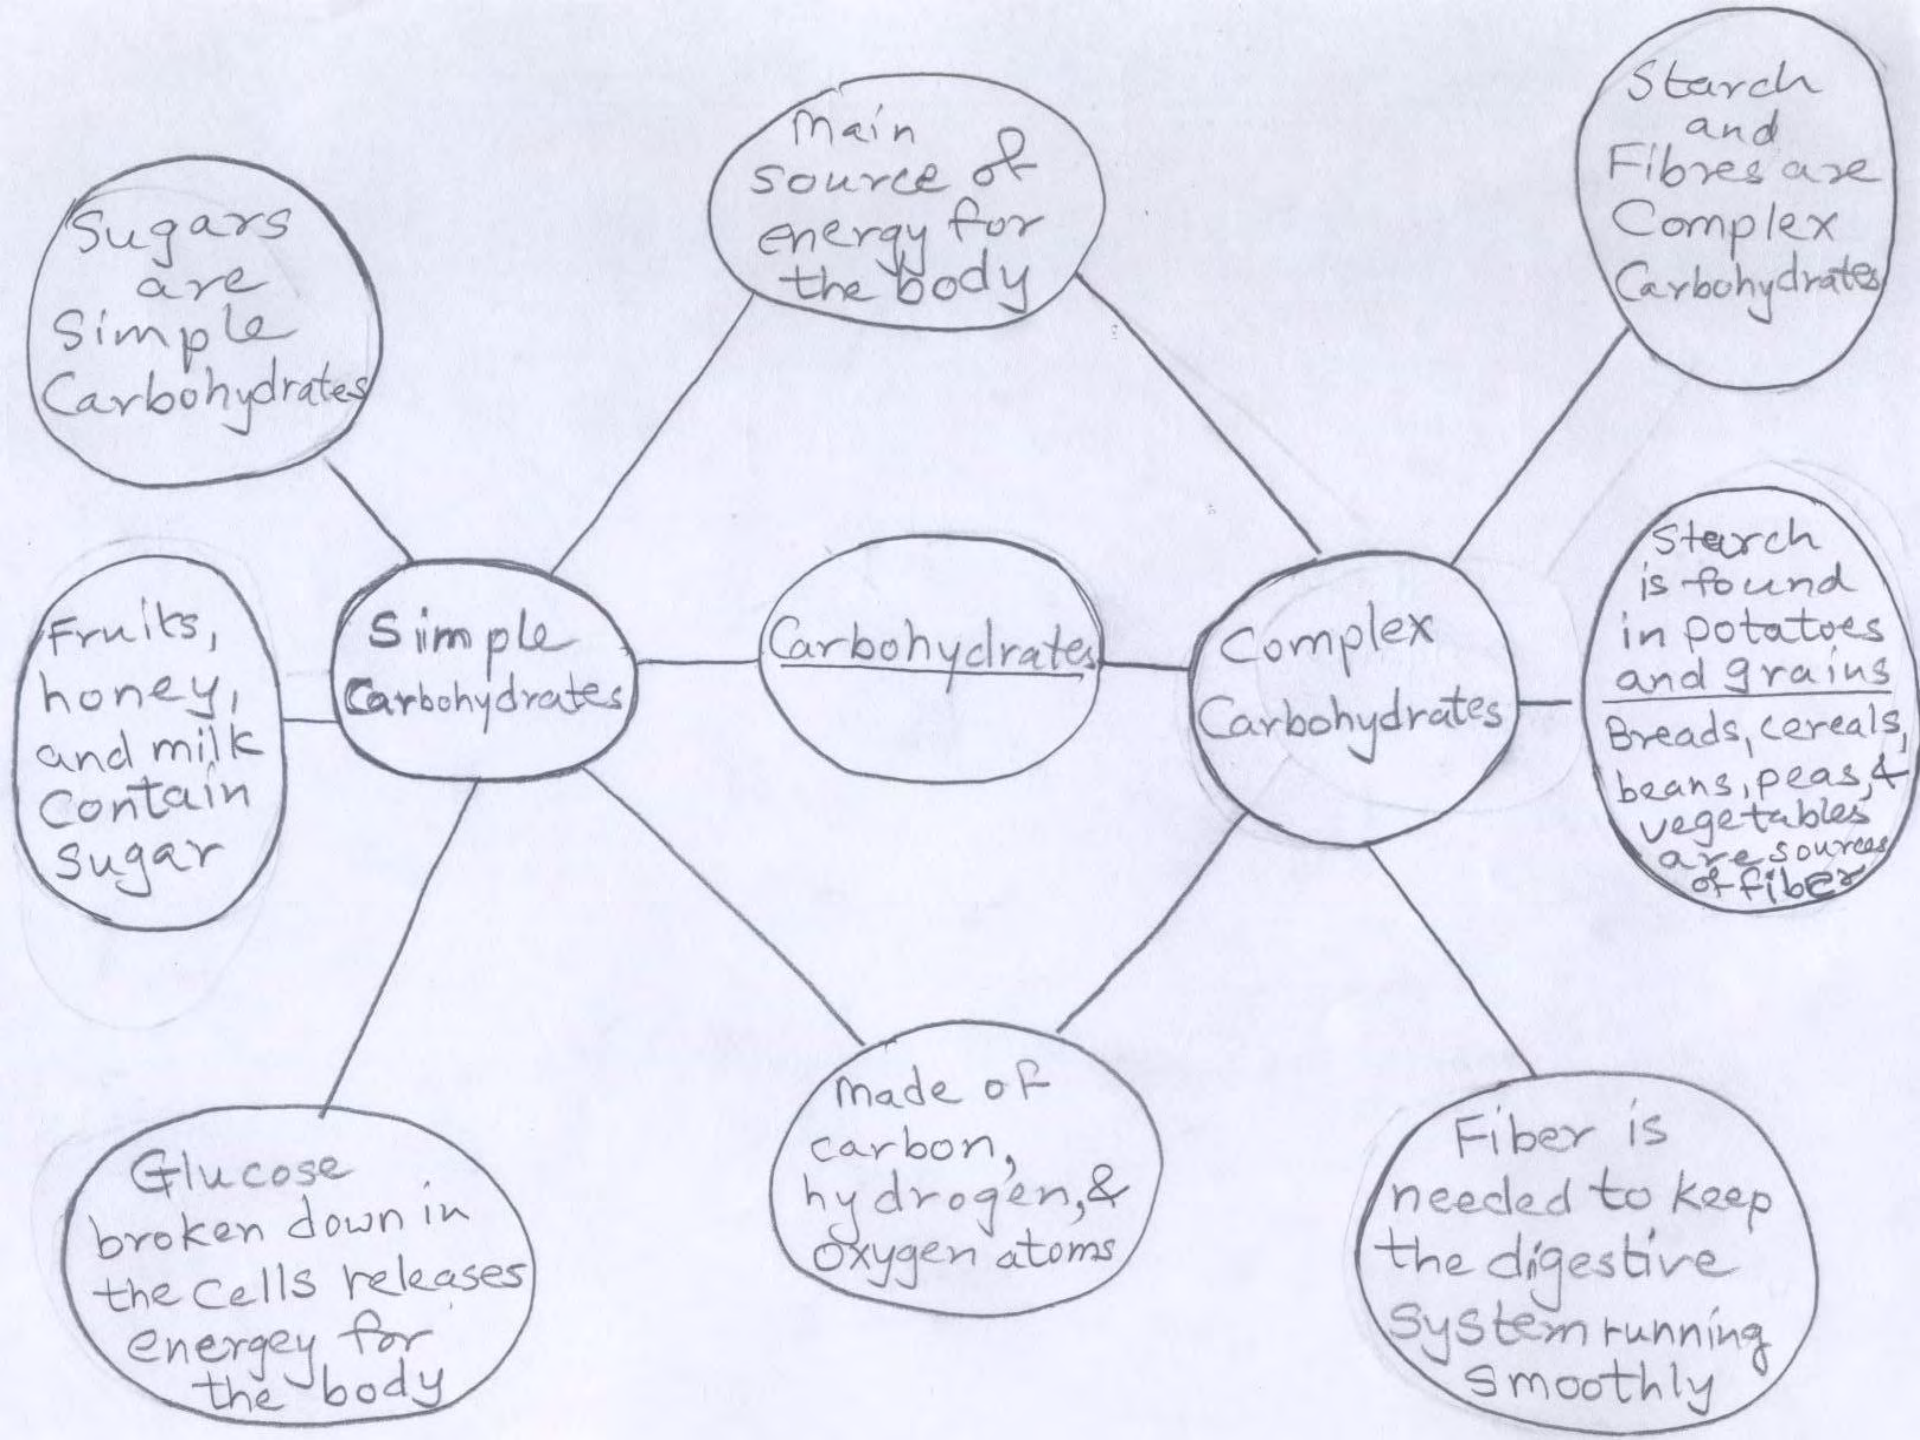 Main
source of
energy for
the body
Starch
and
Fibres are
Complex
Carbohydrates
Sugars
are
Simple
Carbohydrates
Fruits,
honey,
and milk
Contain
Sugar
Simple
Carbohydrates
Carbohydrates
Complex
Carbohydrates
Starch
is found
in potatoes
and grains
Breads, cereals,
beans, peas, &
vegetables
are sources
of fiber
Glucose
broken down in
the cells releases
energey for
the body
Made of
carbon,
hydrogen, &
oxygen atoms
Fiber is
needed to keep
the digestive
system running
smoothly